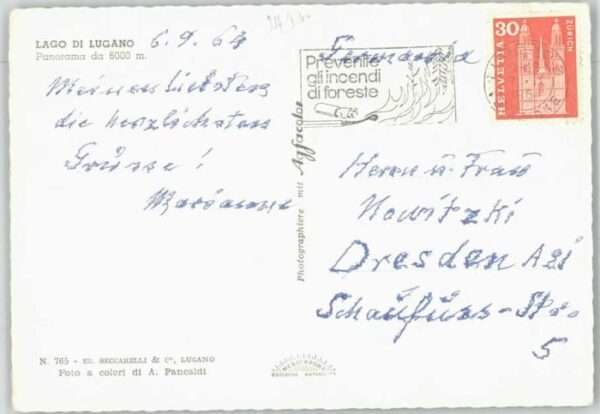 LAGO DI LUGANO
Panorama da 6000 m.
6.9.64
Meinen Liebsten
die herzlichsten
Grüsse!
Marianne
Photographiere mit Agfacolor
Prevenite
gli incendi
di foreste
30
HELVETIA
ZÜRICH
Germania
Herrn u. Frau
Nowitzki
Dresden A21
Schaufuss-Str.
5
N. 765 - ED. BECCARELLI & Cº, LUGANO
Foto a colori di A. Pancaldi